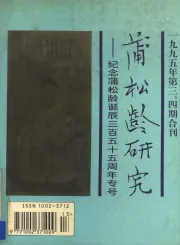 一九九五年第三、四期合刊
蒲松龄研究
——纪念蒲松龄诞辰三百五十五周年专号
ISSN 1002-3712
9 771002 371009